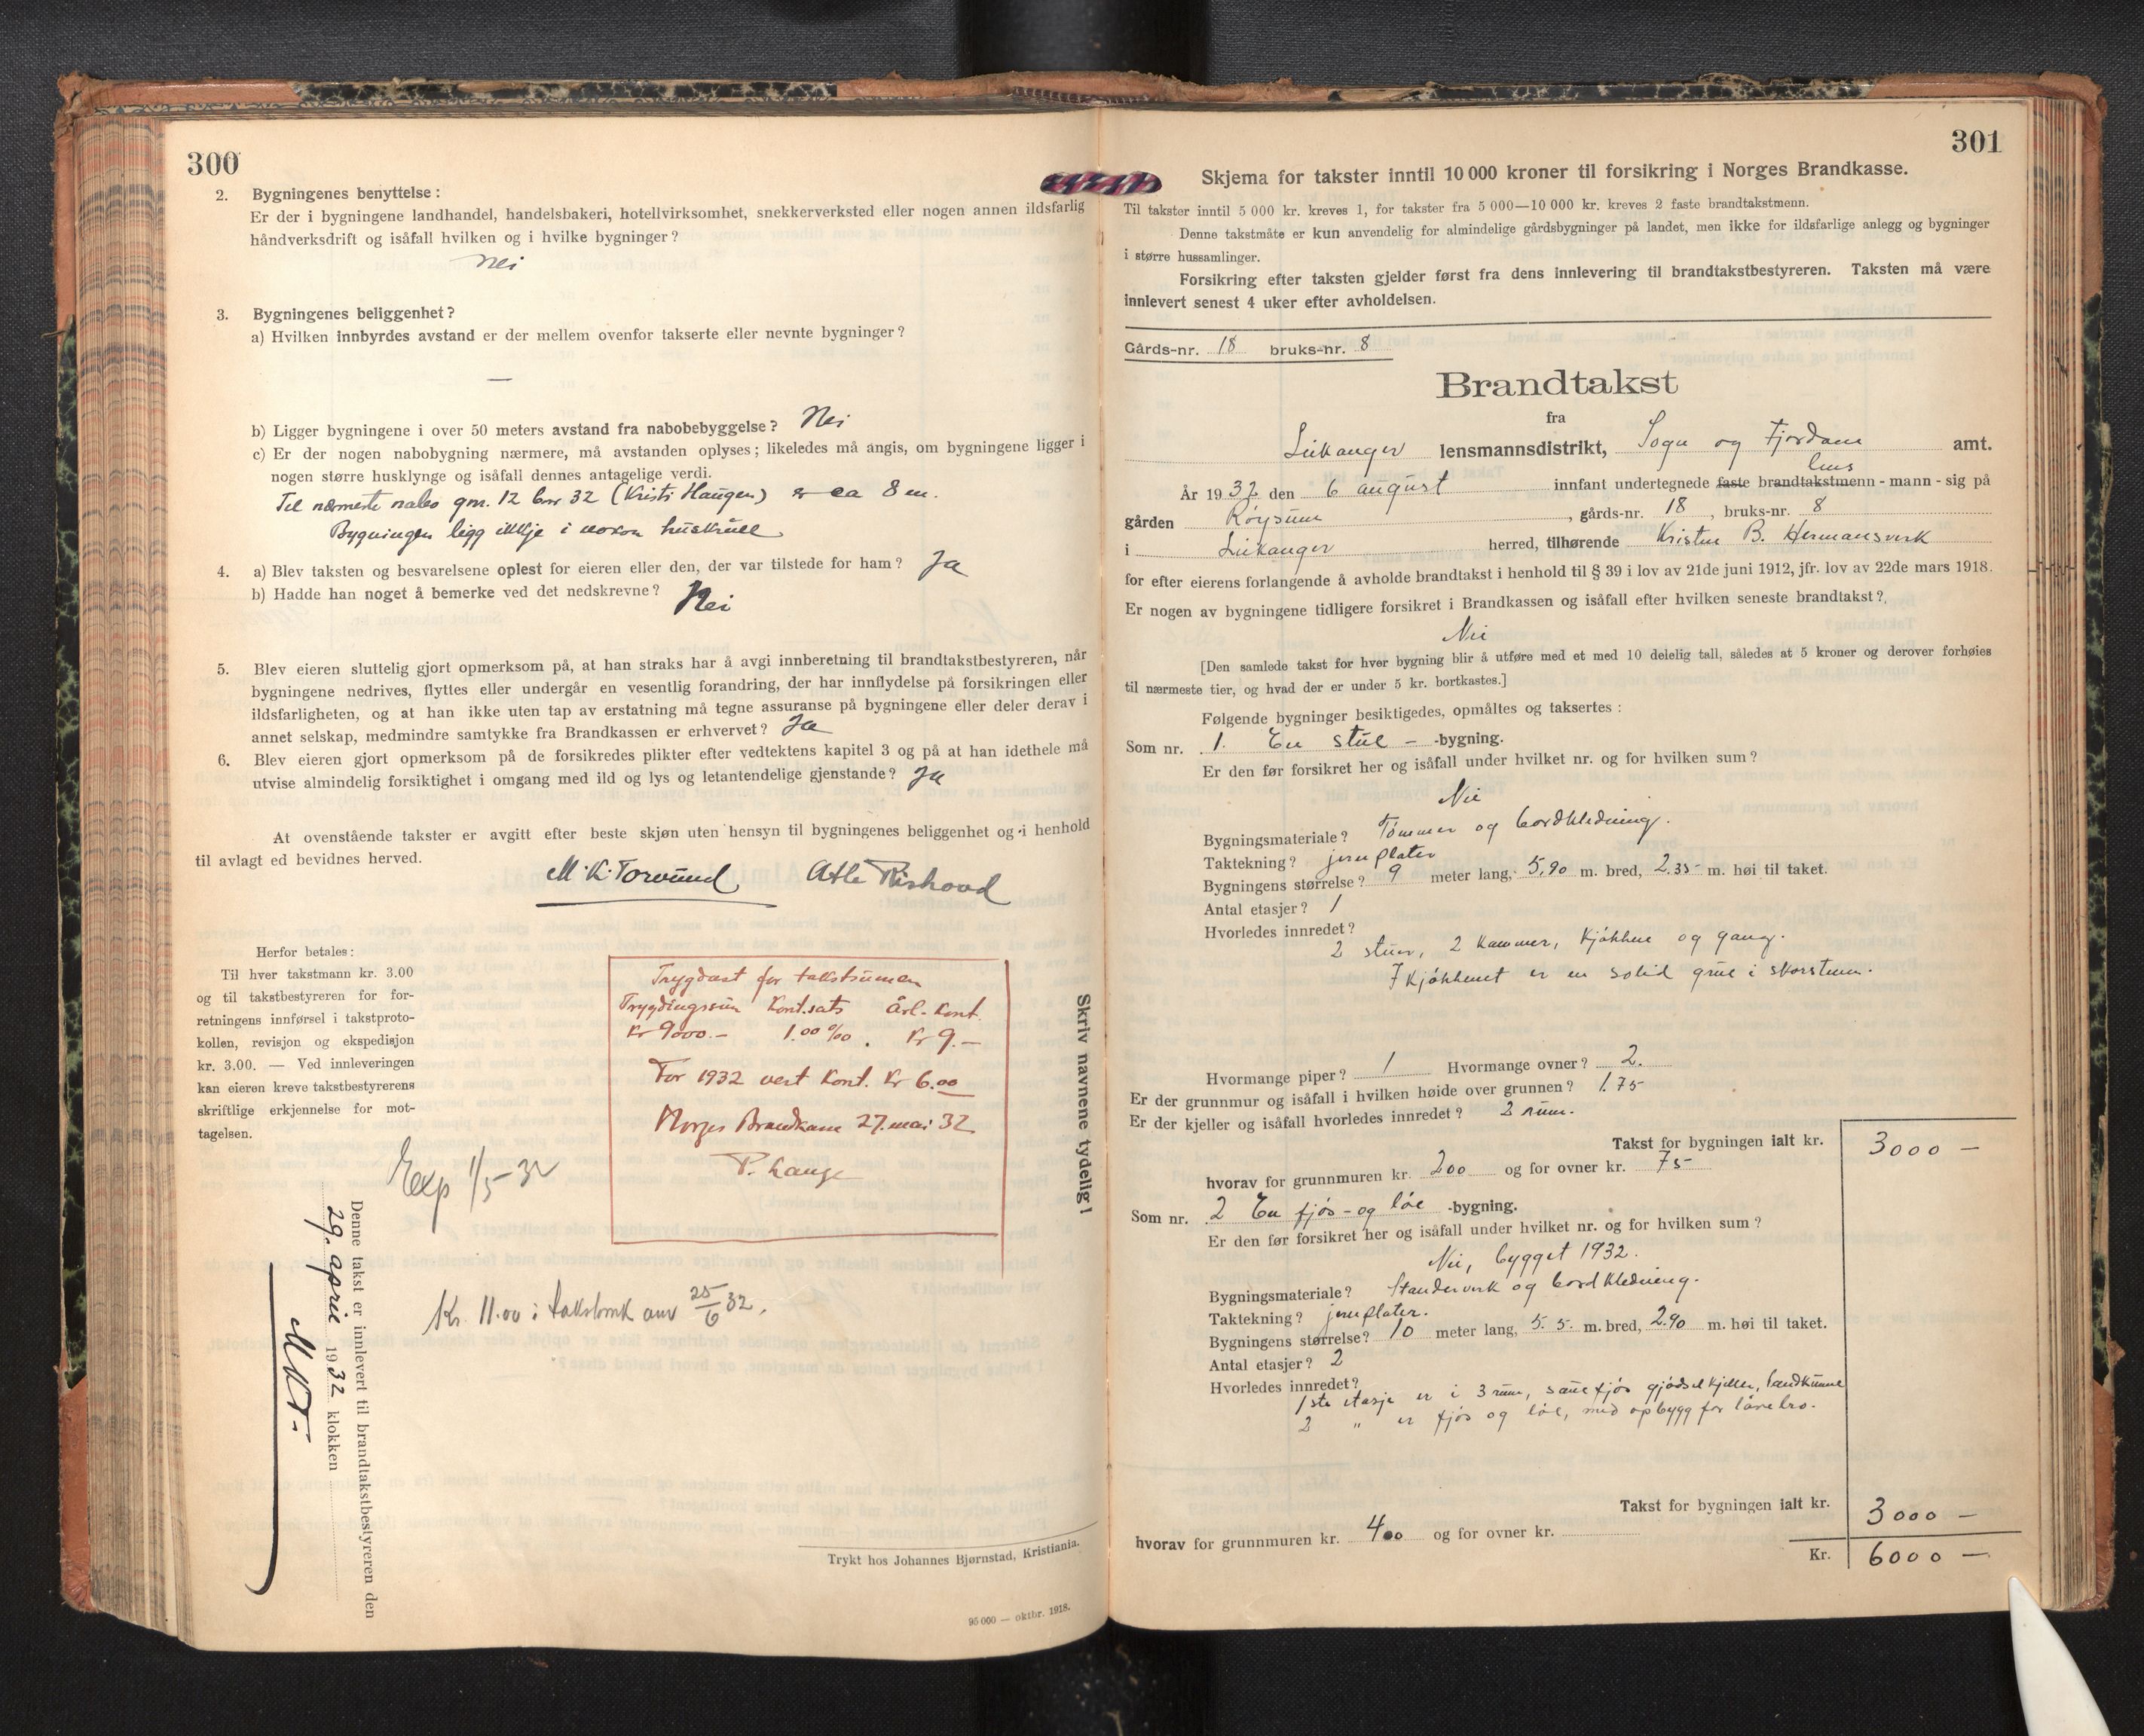 300
2. Bygningenes benyttelse:
Er der i bygningene landhandel, handelsbakeri, hotellvirksomhet, snekkerverksted eller nogen annen ildsfarlig
håndverksdrift og isåfall hvilken og i hvilke bygninger?
Nei
3. Bygningenes beliggenhet?
a) Hvilken innbyrdes avstand er der mellem ovenfor takserte eller nevnte bygninger?
—
b) Ligger bygningene i over 50 meters avstand fra nabobebyggelse? Nei
c) Er der nogen nabobygning nærmere, må avstanden oplyses; likeledes må angis, om bygningene ligger i
nogen større husklynge og isåfall dennes antagelige verdi.
Til nærmeste nabo gnr. 12 bnr 32 (Kristi Haugen) er ca 8 m.
Bygningen ligg ikkje i nokon huskrull
4. a) Blev taksten og besvarelsene oplest for eieren eller den, der var tilstede for ham? Ja
b) Hadde han noget å bemerke ved det nedskrevne? Nei
5. Blev eieren sluttelig gjort opmerksom på, at han straks har å avgi innberetning til brandtakstbestyreren, når
bygningene nedrives, flyttes eller undergår en vesentlig forandring, der har innflydelse på forsikringen eller
ildsfarligheten, og at han ikke uten tap av erstatning må tegne assuranse på bygningene eller deler derav i
annet selskap, medmindre samtykke fra Brandkassen er erhvervet? Ja
6. Blev eieren gjort opmerksom på de forsikredes plikter efter vedtektens kapitel 3 og på at han idethele må
utvise almindelig forsiktighet i omgang med ild og lys og letantendelige gjenstande? Ja
At ovenstående takster er avgitt efter beste skjøn uten hensyn til bygningenes beliggenhet og i henhold
til avlagt ed bevidnes herved.
M. K. Torvund Atle Riskood
Herfor betales:
Til hver takstmann kr. 3.00
og til takstbestyreren for for-
retningens innførsel i takstproto-
kollen, revisjon og ekspedisjon
kr. 3.00. — Ved innleveringen
kan eieren kreve takstbestyrerens
skriftlige erkjennelse for mot-
tagelsen.
Trygdast for takstsumen
Trygdingssum Kont.sats Årl. Kont.
Kr 9000.- 1.00 ‰. Kr 9.-
For 1932 vert Kont. Kr 6.00
Norges Brandkasse 27. mai 32
P. Lange
Skriv navnene tydelig!
Exp 1/5-32
Denne takst er innlevert til brandtakstbestyreren den
29. april 1932 klokken
M K T.
Kr. 11.00 i 25/6 32.
Trykt hos Johannes Bjørnstad, Kristiania.
95 000 — oktbr. 1918.
301
Skjema for takster inntil 10 000 kroner til forsikring i Norges Brandkasse.
Til takster inntil 5 000 kr. kreves 1, for takster fra 5 000—10 000 kr. kreves 2 faste brandtakstmenn.
Denne takstmåte er kun anvendelig for almindelige gårdsbygninger på landet, men ikke for ildsfarlige anlegg og bygninger
i større hussamlinger.
Forsikring efter taksten gjelder først fra dens innlevering til brandtakstbestyreren. Taksten må være
innlevert senest 4 uker efter avholdelsen.
Gårds-nr. 18 bruks-nr. 8
Brandtakst
fra
Leikanger lensmannsdistrikt, Sogn og Fjordane amt.
lens
År 1932 den 6 august innfant undertegnede faste brandtakstmenn - mann - sig på
gården Røysum, gårds-nr. 18, bruks-nr. 8
i Leikanger herred, tilhørende Kristen B. Hermansverk
for efter eierens forlangende å avholde brandtakst i henhold til § 39 i lov av 21de juni 1912, jfr. lov av 22de mars 1918.
Er nogen av bygningene tidligere forsikret i Brandkassen og isåfall efter hvilken seneste brandtakst?
Nei
[Den samlede takst for hver bygning blir å utføre med et med 10 delelig tall, således at 5 kroner og derover forhøies
til nærmeste tier, og hvad der er under 5 kr. bortkastes.]
Følgende bygninger besiktigedes, opmåltes og taksertes:
Som nr. 1. En stue - -bygning.
Er den før forsikret her og isåfall under hvilket nr. og for hvilken sum?
Nei
Bygningsmateriale? Tømmer og bordkledning.
Taktekning? jernplater
Bygningens størrelse? 9 meter lang, 5,90 m. bred, 2.35 m. høi til taket.
Antal etasjer? 1
Hvorledes innredet?
2 stuer, 2 kammer, kjøkken og gang.
I kjøkkenet er en solid grue i skorsteen.
Hvormange piper? 1 Hvormange ovner? 2.
Er der grunnmur og isåfall i hvilken høide over grunnen? 1.75
Er der kjeller og isåfall hvorledes innredet? 2 rum.
Takst for bygningen ialt kr. 3000 —
hvorav for grunnmuren kr. 200 og for ovner kr. 75
Som nr. 2 En fjøs- og løe -bygning.
Er den før forsikret her og isåfall under hvilket nr. og for hvilken sum?
Nei, bygget 1932.
Bygningsmateriale? Standerverk og bordkledning.
Taktekning? jernplater.
Bygningens størrelse? 10 meter lang, 5.5. m. bred, 2.90 m. høi til taket.
Antal etasjer? 2
Hvorledes innredet?
1ste etasje er i 3 rum, sauefjøs gjødselkjeller, landkumme
2 " er fjøs og løe, med opbygg for låvebro.
Takst for bygningen ialt kr. 3000 —
hvorav for grunnmuren kr. 400 og for ovner kr.
Kr. 6000 —